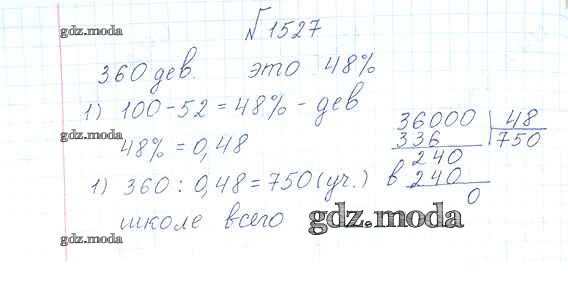 gdz.moda
№1527
360 дев. это 48%
gdz.moda
1) 100-52=48% - дев
36000 | 48
gdz.moda
336 750
48% = 0,48
240
1) 360 : 0,48 = 750 (уч.) в
240
0
школе всего
gdz.moda
gdz.moda